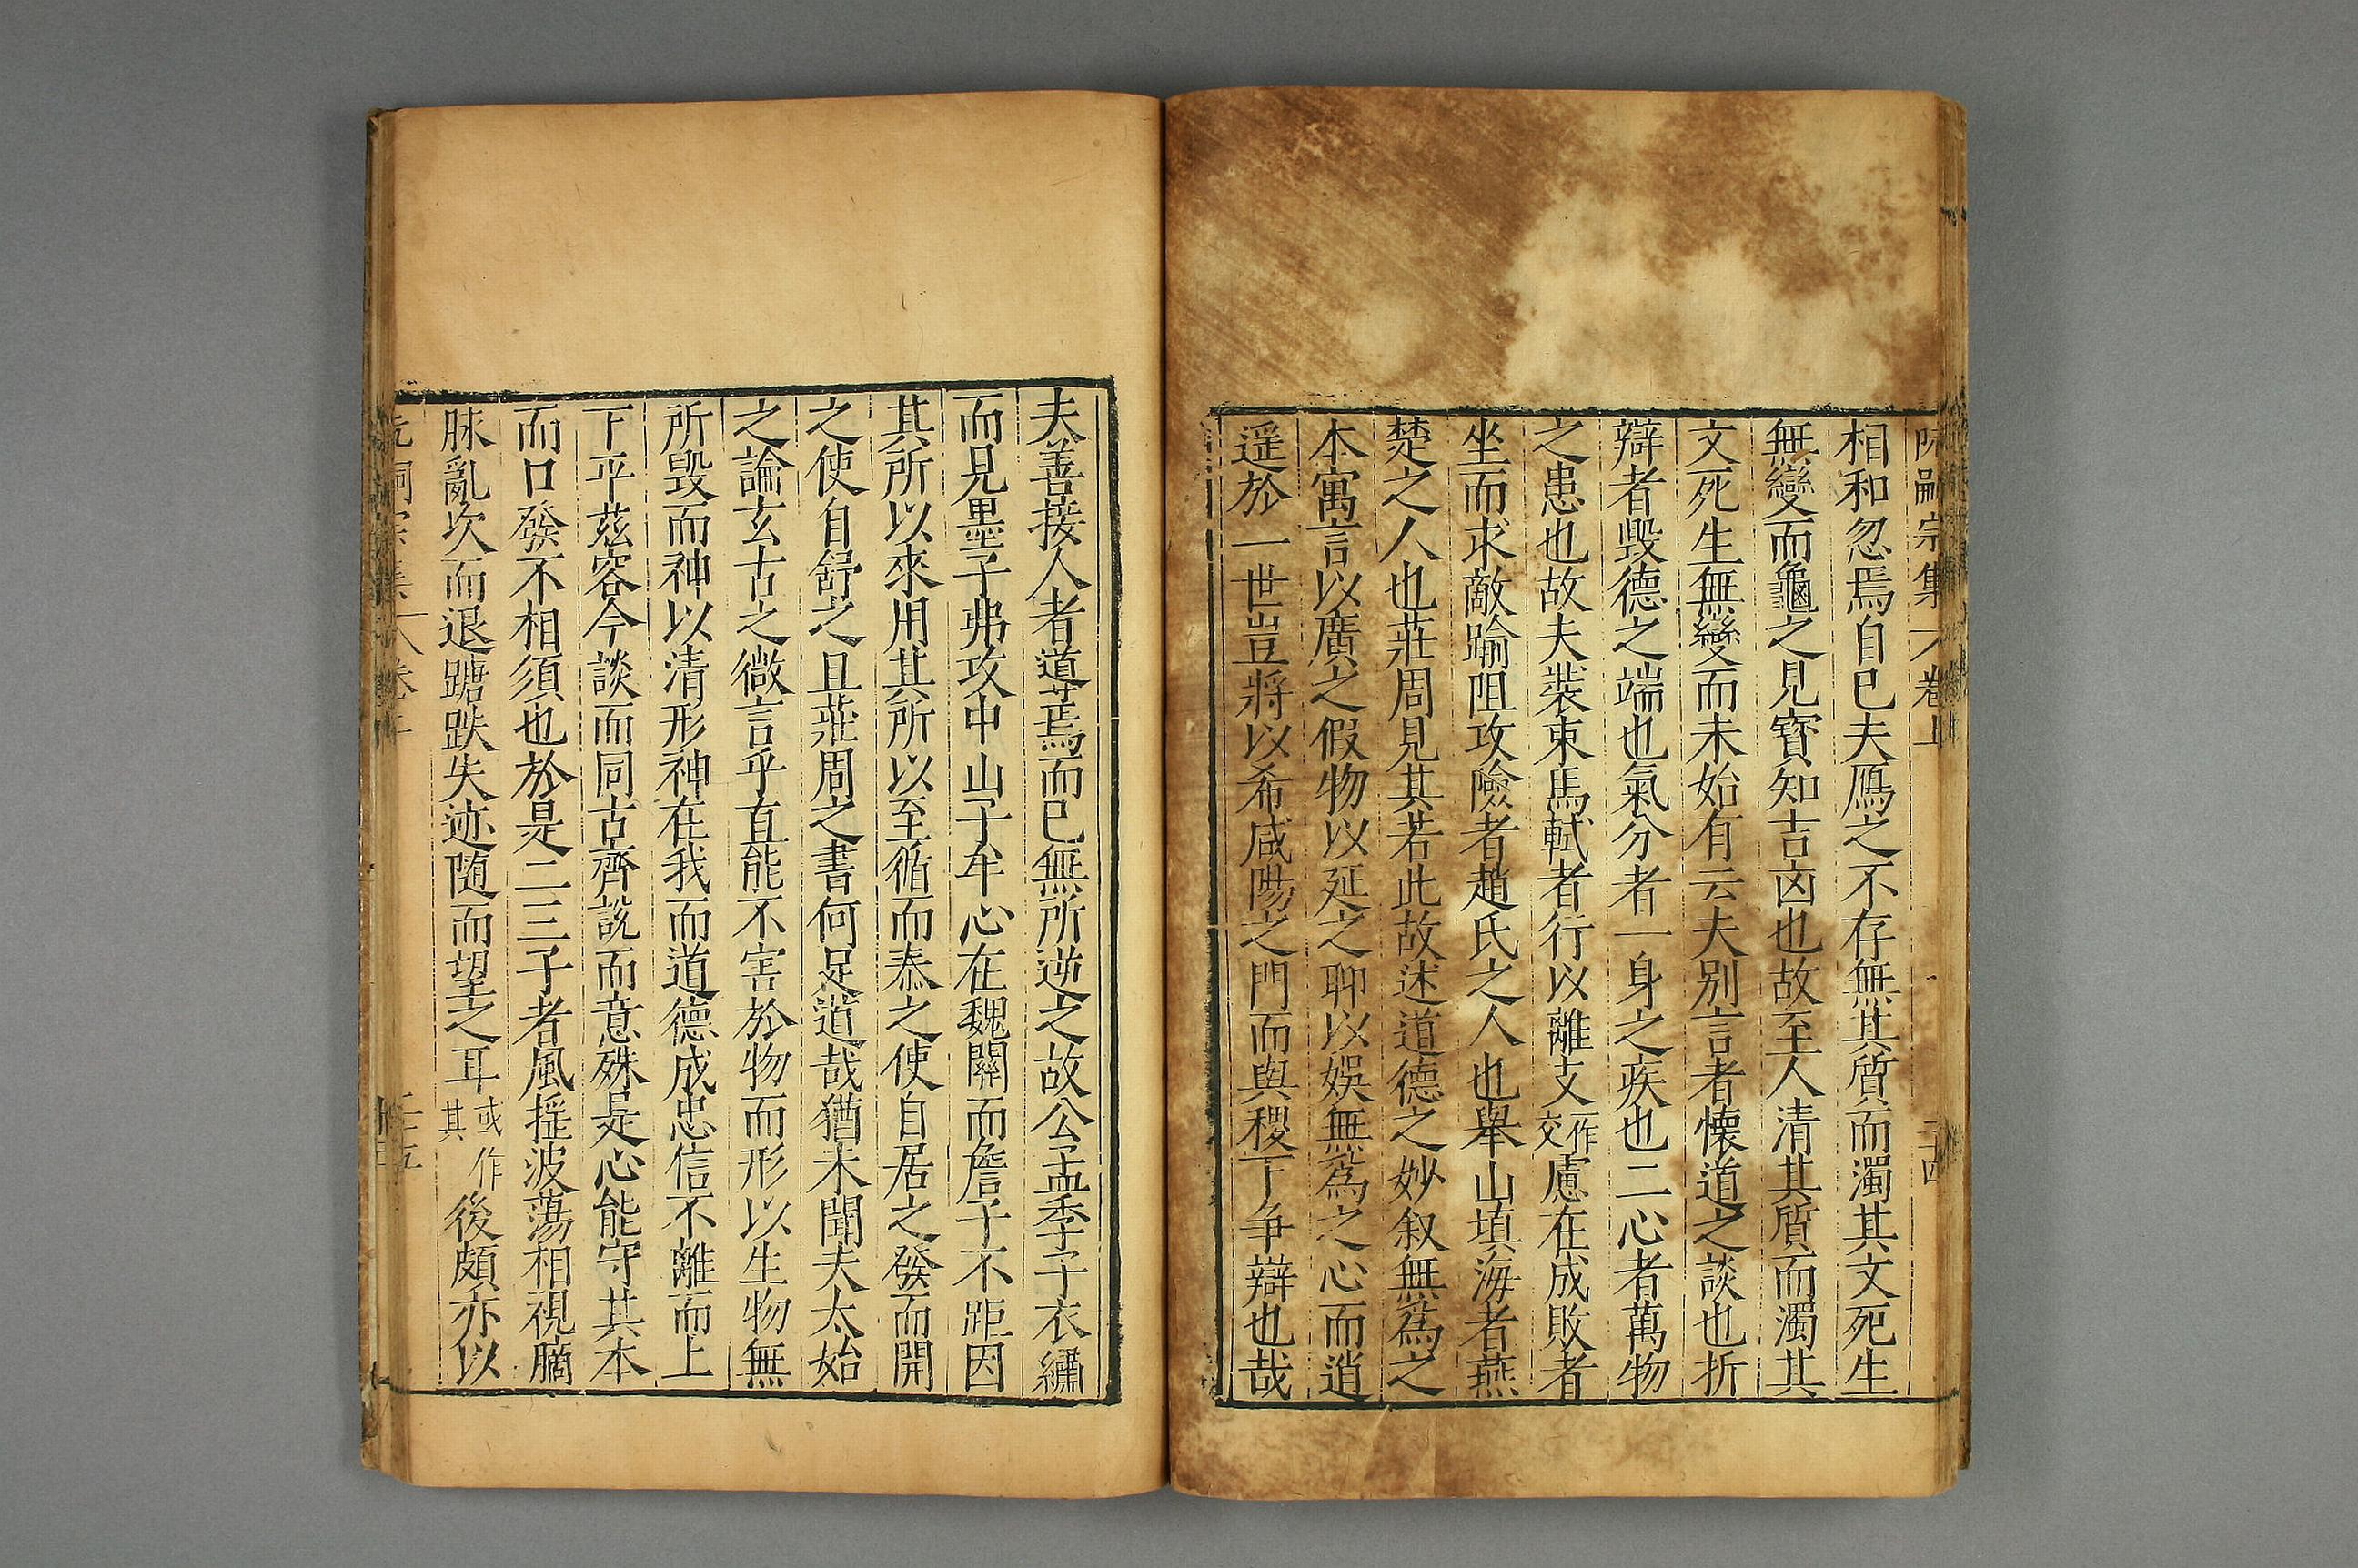 阮嗣宗集 卷上 二十四
相和忽焉自已夫鴈之不存無其質而濁其文死生
無變而龜之見寳知吉凶也故至人清其質而濁其
文死生無變而未始有云夫别言者懷道之談也折
辯者毀德之端也氣分者一身之疾也二心者萬物
之患也故夫裝束馬軾者行以離支一作交慮在成敗者
坐而求敵踰阻攻險者趙氏之人也舉山填海者燕
楚之人也莊周見其若此故述道德之妙叙無為之
本寓言以廣之假物以延之聊以娛無為之心而逍
遥於一世豈將以希咸陽之門而與稷下争辯也哉
夫善接人者道焉而已無所逆之故公孟季子衣繡
而見墨子弗攻中山子牟心在魏闕而詹子不距因
其所以來用其所以至循而泰之使自居之發而開
之使自舒之且莊周之書何足道哉猶未聞夫太始
之論玄古之微言乎直能不害於物而形以生物無
所毀而神以清形神在我而道德成忠信不離而上
下平茲客今談而同古齊說而意殊是心能守其本
而口發不相須也於是二三子者風揺波蕩相視䐽
脉亂次而退䠀跌失迹隨而望之耳或作其後頗亦以
阮嗣宗集 卷上 二十五